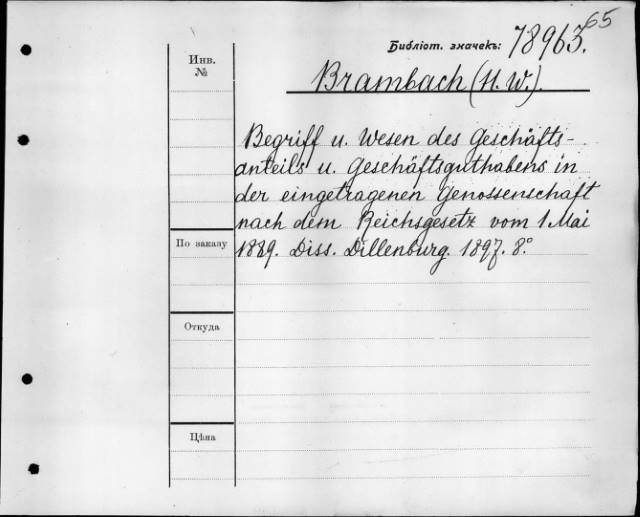 65
Библіот. значекъ: 78963.
Инв.
№
Brambach (H. W.).
Begriff u. Wesen des Geschäfts-
anteils u. Geschäftsguthabens in
der eingetragenen Genossenschaft
nach dem Reichsgesetz vom 1. Mai
1889. Diss. Dillenburg. 1897. 8.°
По заказу
Откуда
Цѣна